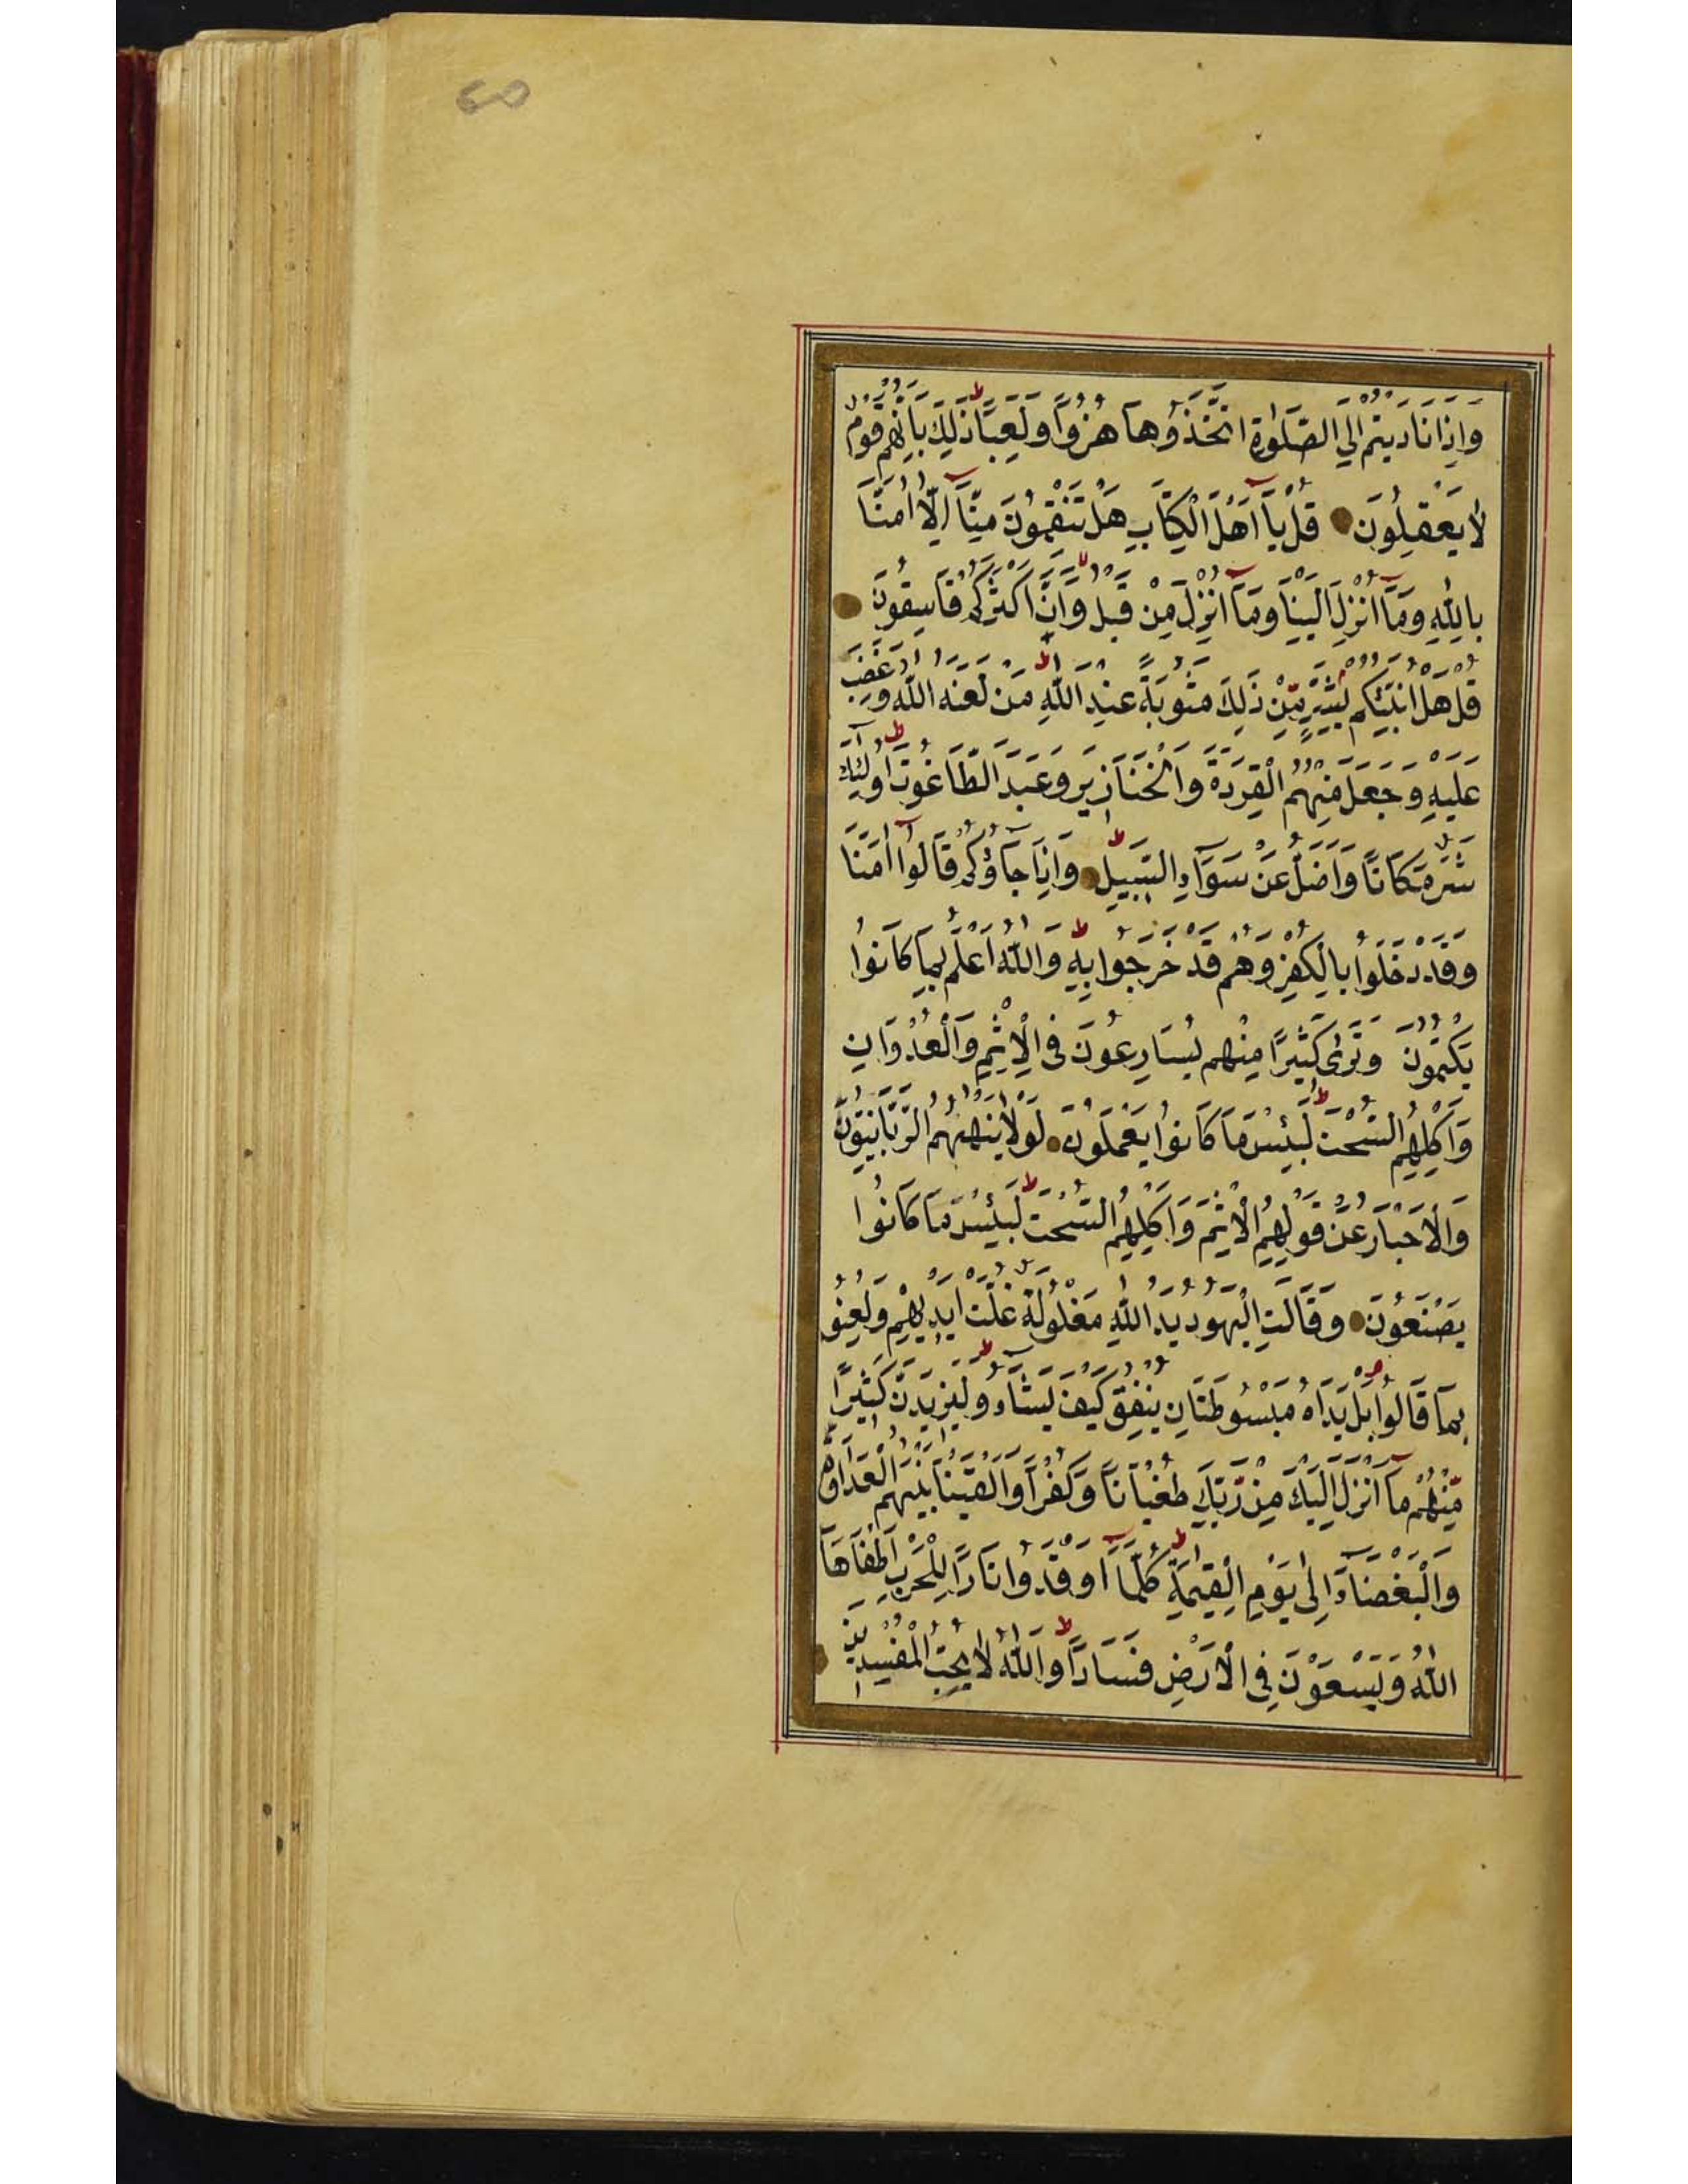 60
وَاِذَا نَادَيْتُمْ اِلَي الصَّلٰوةِ اتَّخَذُوْهَا هُزُوًا وَلَعِبًا ط ذٰلِكَ بِاَنَّهُمْ قَوْمٌ
لَا يَعْقِلُوْنَ قُلْ يَآ اَهْلَ الْكِتَابِ هَلْ تَنْقِمُوْنَ مِنَّآ اِلَّآ اٰمَنَّا
بِاللّٰهِ وَمَآ اُنْزِلَ اِلَيْنَا وَمَآ اُنْزِلَ مِنْ قَبْلُ لا وَاَنَّ اَكْثَرَكُمْ فَاسِقُوْنَ
قُلْ هَلْ اُنَبِّئُكُمْ بِشَرٍّ مِّنْ ذٰلِكَ مَثُوْبَةً عِنْدَ اللّٰهِ ط مَنْ لَعَنَهُ اللّٰهُ وَغَضِبَ
عَلَيْهِ وَجَعَلَ مِنْهُمُ الْقِرَدَةَ وَالْخَنَازِيْرَ وَعَبَدَ الطَّاغُوْتَ ط اُولٰٓئِكَ
شَرٌّ مَّكَانًا وَاَضَلُّ عَنْ سَوَآءِ السَّبِيْلِ ط وَاِذَا جَآؤُكُمْ قَالُوْآ اٰمَنَّا
وَقَدْ دَخَلُوْا بِالْكُفْرِ وَهُمْ قَدْ خَرَجُوْا بِهٖ ط وَاللّٰهُ اَعْلَمُ بِمَا كَانُوْا
يَكْتُمُوْنَ وَتَرٰى كَثِيْرًا مِنْهُمْ يُسَارِعُوْنَ فِى الْاِثْمِ وَالْعُدْوَانِ
وَاَكْلِهِمُ السُّحْتَ ط لَبِئْسَ مَا كَانُوْا يَعْمَلُوْنَ لَوْلَا يَنْهٰهُمُ الرَّبَّانِيُّوْنَ
وَالْاَحْبَارُ عَنْ قَوْلِهِمُ الْاِثْمَ وَاَكْلِهِمُ السُّحْتَ ط لَبِئْسَ مَا كَانُوْا
يَصْنَعُوْنَ وَقَالَتِ الْيَهُوْدُ يَدُ اللّٰهِ مَغْلُوْلَةٌ غُلَّتْ اَيْدِيْهِمْ وَلُعِنُوْ
بِمَا قَالُوْا بَلْ يَدَاهُ مَبْسُوْطَتَانِ يُنْفِقُ كَيْفَ يَشَآءُ ط وَلَيَزِيْدَنَّ كَثِيْرًا
مِّنْهُمْ مَآ اُنْزِلَ اِلَيْكَ مِنْ رَّبِّكَ طُغْيَانًا وَّكُفْرًا وَاَلْقَيْنَا بَيْنَهُمُ الْعَدَاوَةَ
وَالْبَغْضَآءَ اِلٰى يَوْمِ الْقِيٰمَةِ ط كُلَّمَآ اَوْقَدُوْا نَارًا لِلْحَرْبِ اَطْفَاَهَا
اللّٰهُ وَيَسْعَوْنَ فِى الْاَرْضِ فَسَادًا ط وَاللّٰهُ لَا يُحِبُّ الْمُفْسِدِيْنَ